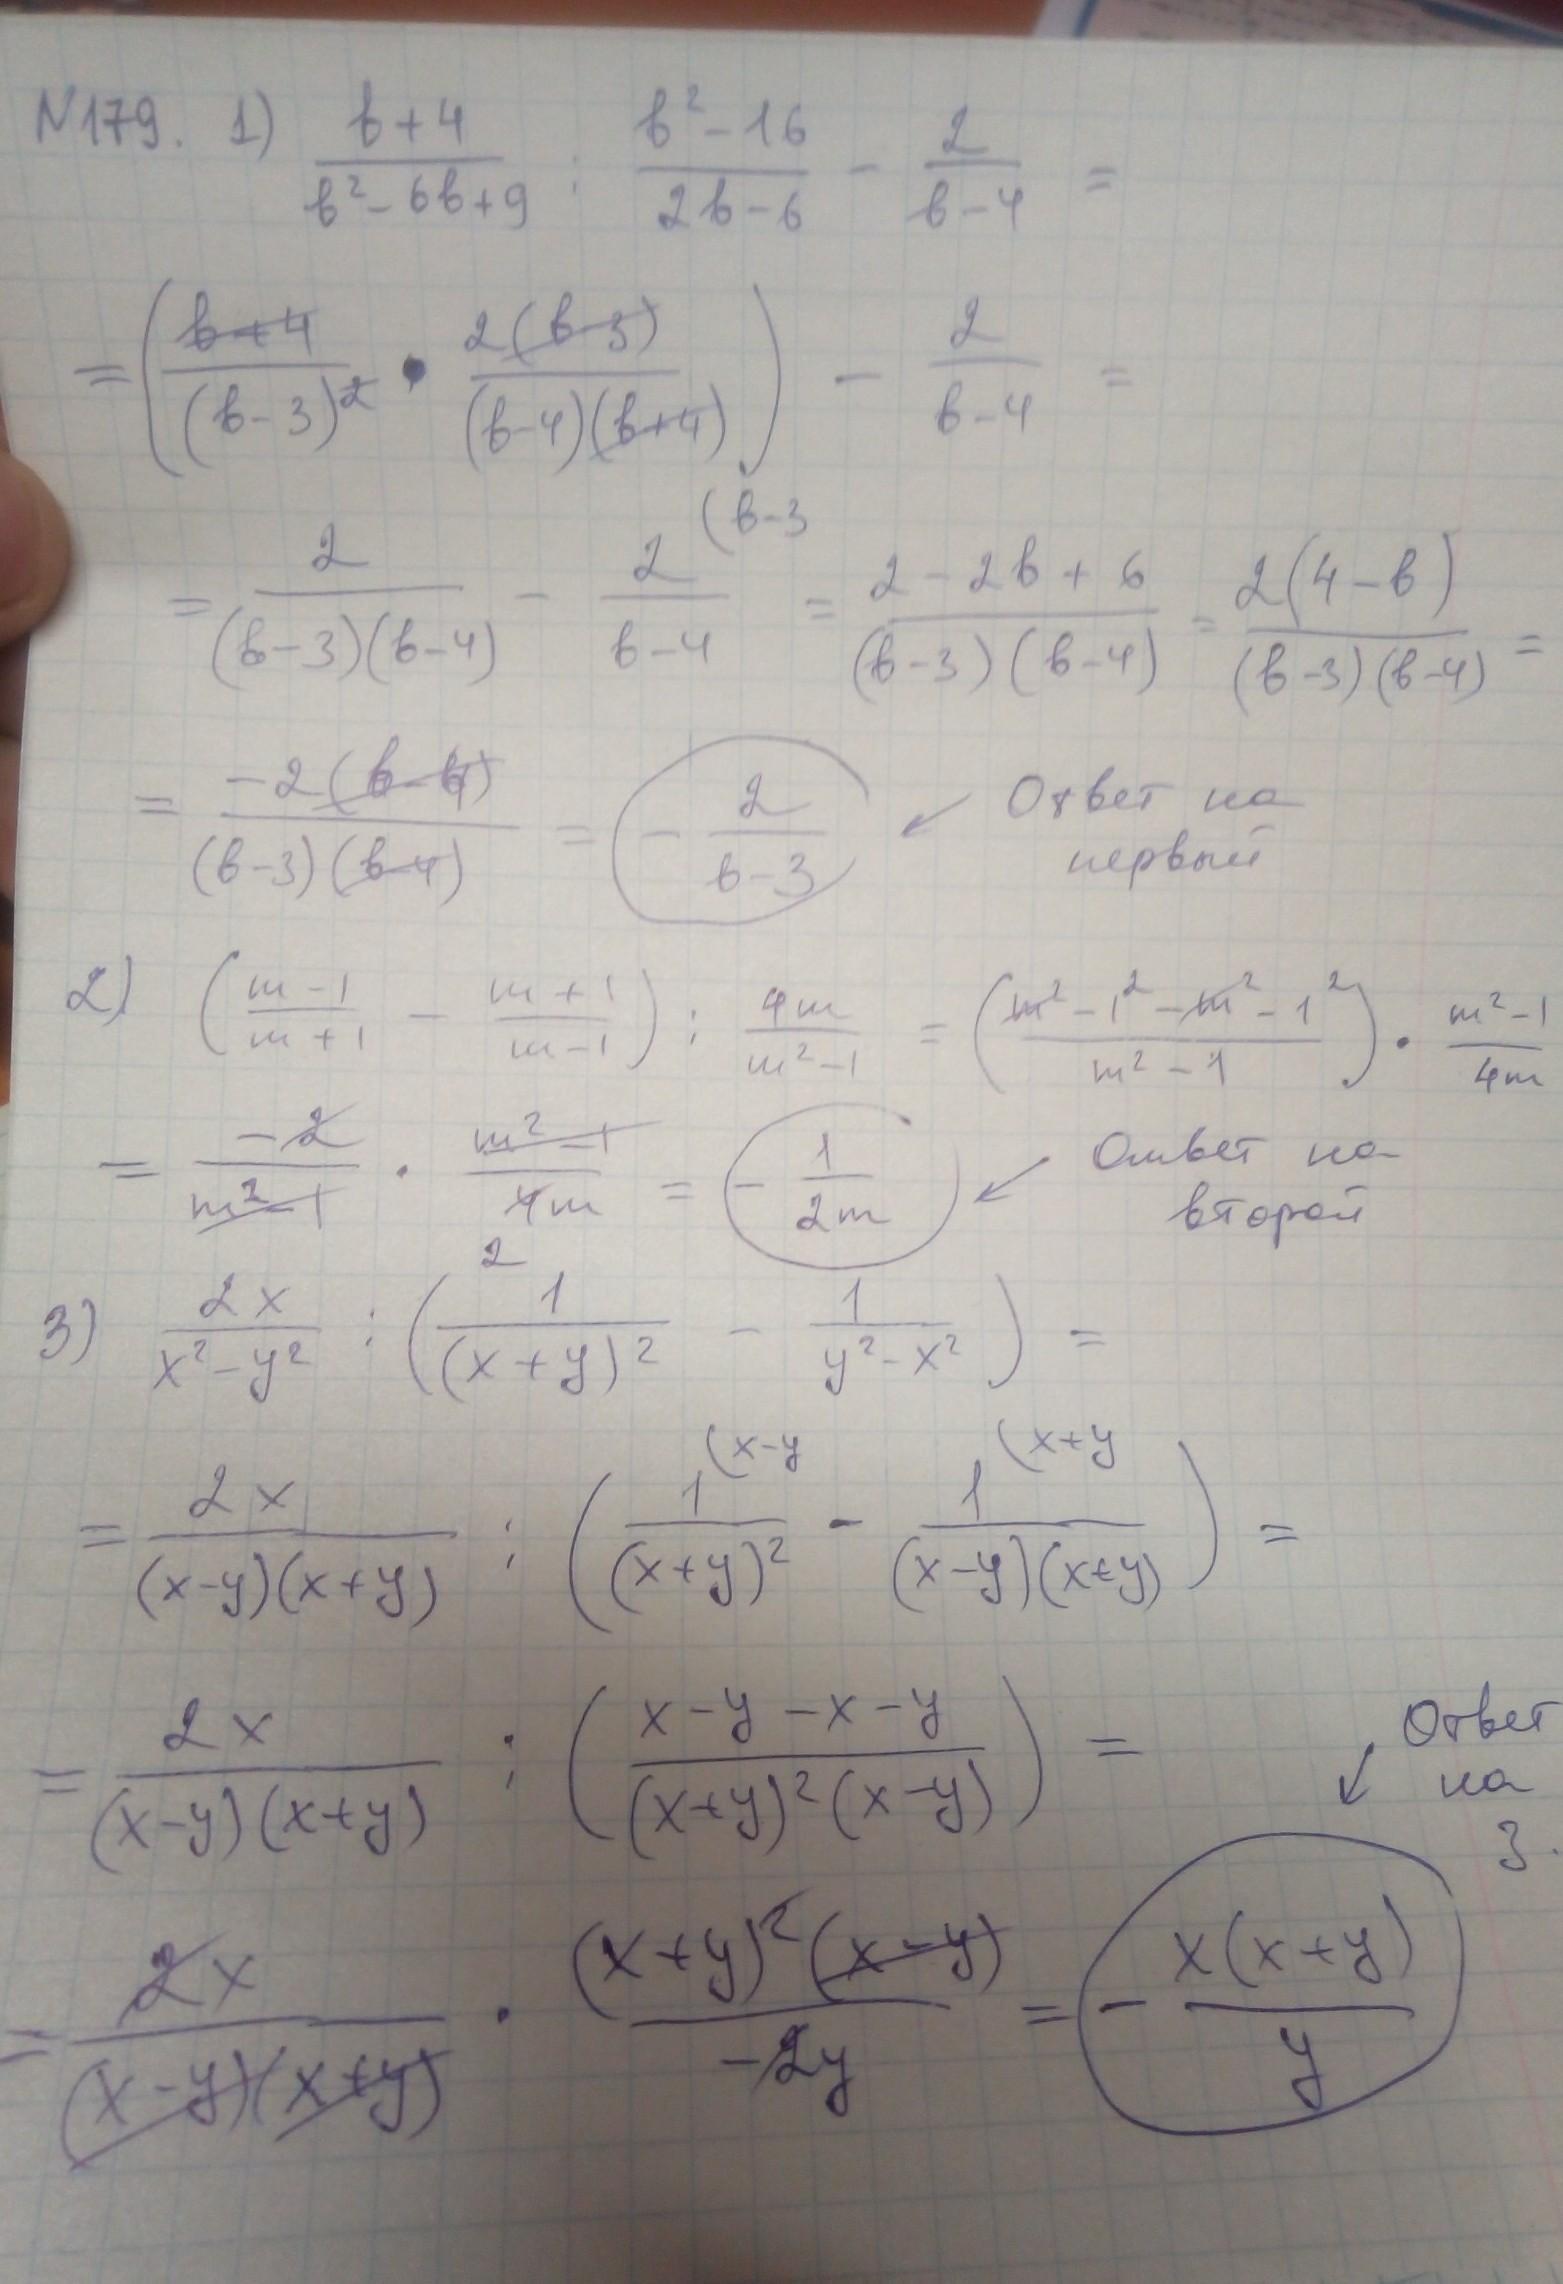 N179. 1) (b+4)/(b²-6b+9) : (b²-16)/(2b-6) - 2/(b-4) =
= ( (b+4)/(b-3)² • 2(b-3)/((b-4)(b+4)) ) - 2/(b-4) =
= 2/((b-3)(b-4)) - 2/(b-4) (b-3 = (2-2b+6)/((b-3)(b-4)) = 2(4-b)/((b-3)(b-4)) =
= -2(b-4)/((b-3)(b-4)) = - 2/(b-3) ↙ Ответ на
первый
2) ( (m-1)/(m+1) - (m+1)/(m-1) ) : 4m/(m²-1) = ( (m²-1²-m²-1²)/(m²-1) ) • (m²-1)/4m
= -2/(m²-1) • (m²-1)/4m 2 = - 1/2m ↙ Ответ на
второй
3) 2x/(x²-y²) : ( 1/(x+y)² - 1/(y²-x²) ) =
= 2x/((x-y)(x+y)) : ( 1/(x+y)² (x-y - 1/((x-y)(x+y)) (x+y ) =
= 2x/((x-y)(x+y)) : ( (x-y-x-y)/((x+y)²(x-y)) ) =
Ответ
на
3.
= 2x/((x-y)(x+y)) • (x+y)²(x-y)/-2y = - x(x+y)/y